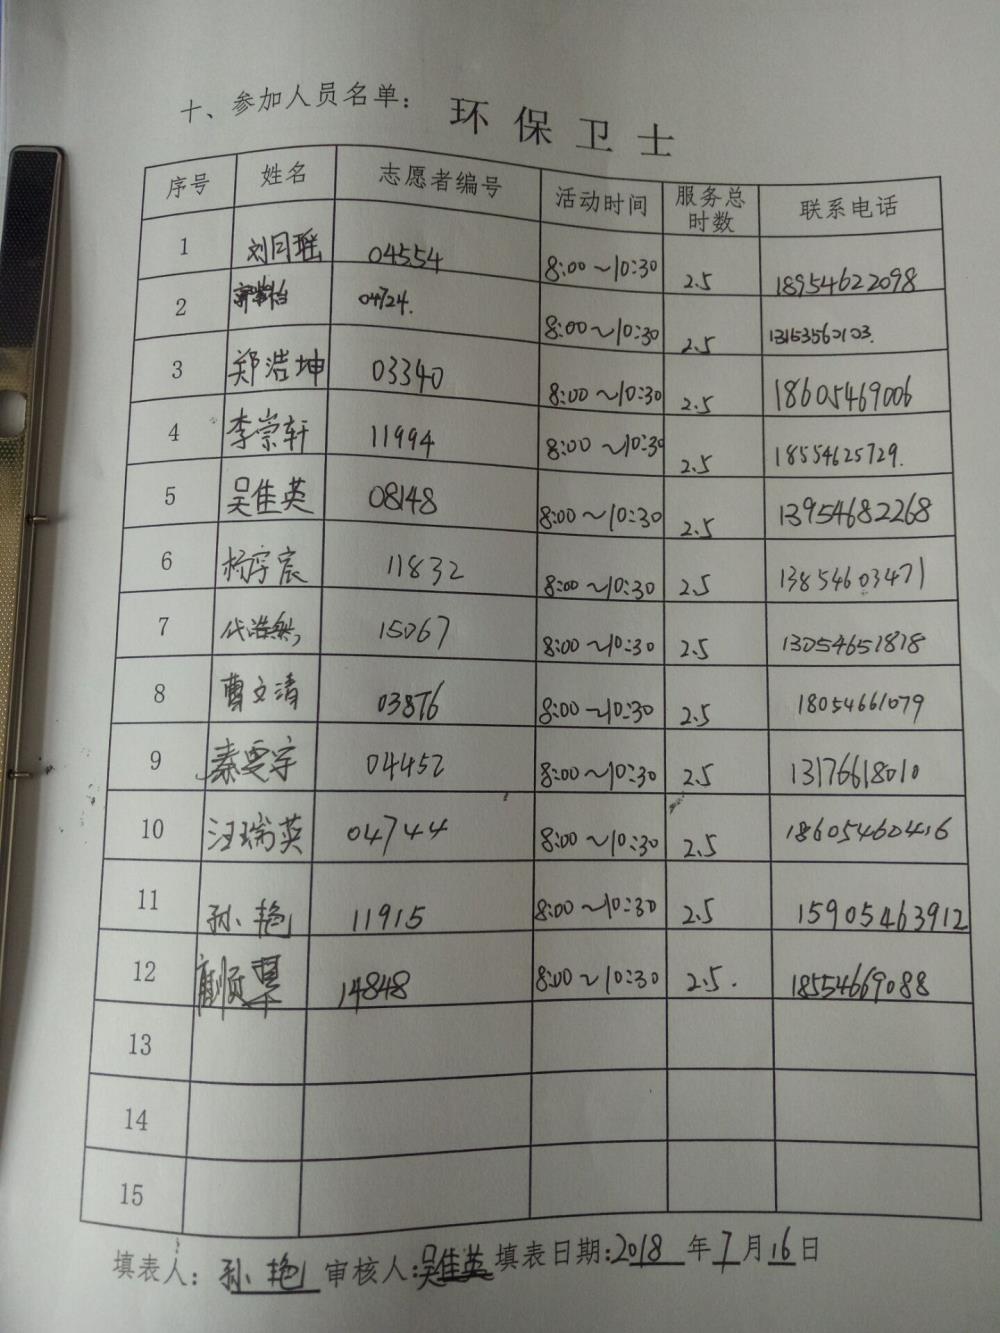 十、参加人员名单：
环保卫士
序号 姓名 志愿者编号 活动时间 服务总时数 联系电话
1 刘月瑶 04554 8:00~10:30 2.5 18954622098
2 04724. 8:00~10:30 2.5 13153560103.
3 郑浩坤 03340 8:00~10:30 2.5 18605469006
4 李崇轩 11994 8:00~10:30 2.5 18554625729.
5 吴佳英 08148 8:00~10:30 2.5 13954682268
6 杨宇宸 11832 8:00~10:30 2.5 13854603471
7 代浩 15067 8:00~10:30 2.5 13054651818
8 曹文清 03876 8:00~10:30 2.5 18054661079
9 秦雯宇 04452 8:00~10:30 2.5 13176618010
10 汪瑞英 04744 8:00~10:30 2.5 18605460416
11 孙艳 11915 8:00~10:30 2.5 15905463912
12 14848 8:00~10:30 2.5. 18554669088
13
14
15
填表人：孙艳 审核人：吴佳英 填表日期：2018年7月16日